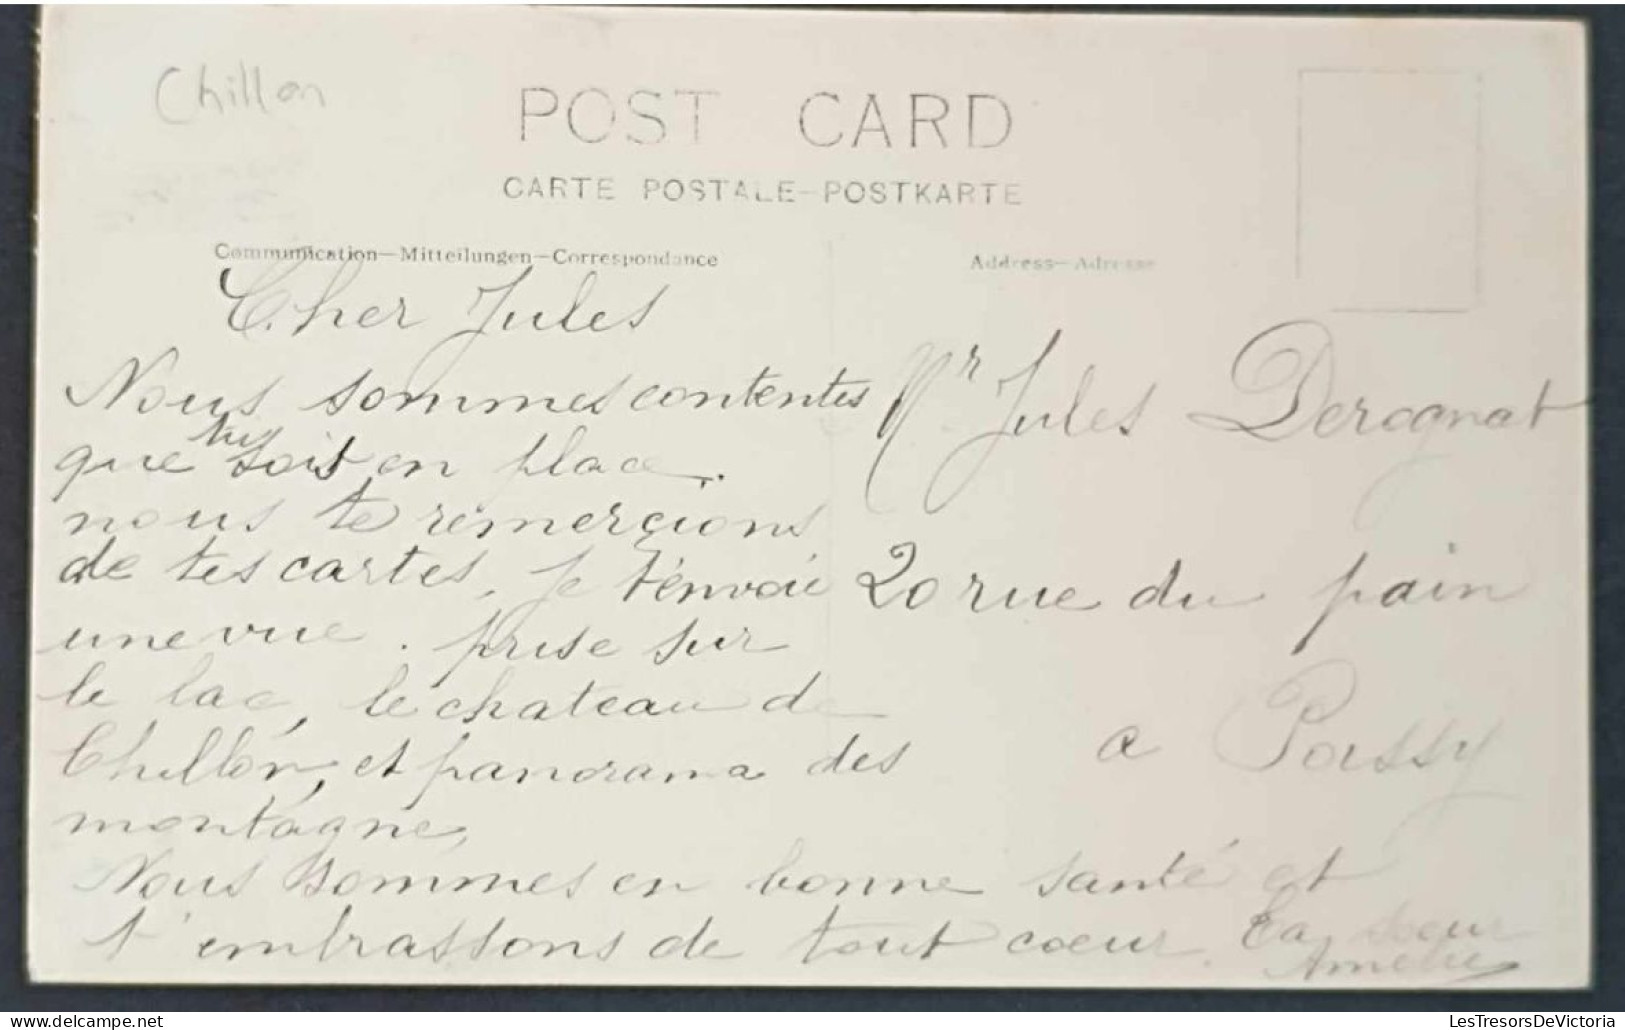 Chillon
POST CARD
CARTE POSTALE—POSTKARTE
Communication—Mitteilungen—Correspondance
Address—Adresse
Cher Jules
Nous sommes contentes
que tu sois en place.
nous te remerçions
de tes cartes. Je t'envoie
une vue. prise sur
le lac, le chateau de
Chillon, et panorama des
montagne,
Nous sommes en bonne santé et
t'embrassons de tout coeur. Ta soeur
Amelie
Mr Jules Derognat
20 rue du pain
a Poissy
LesTresorsDeVictoria